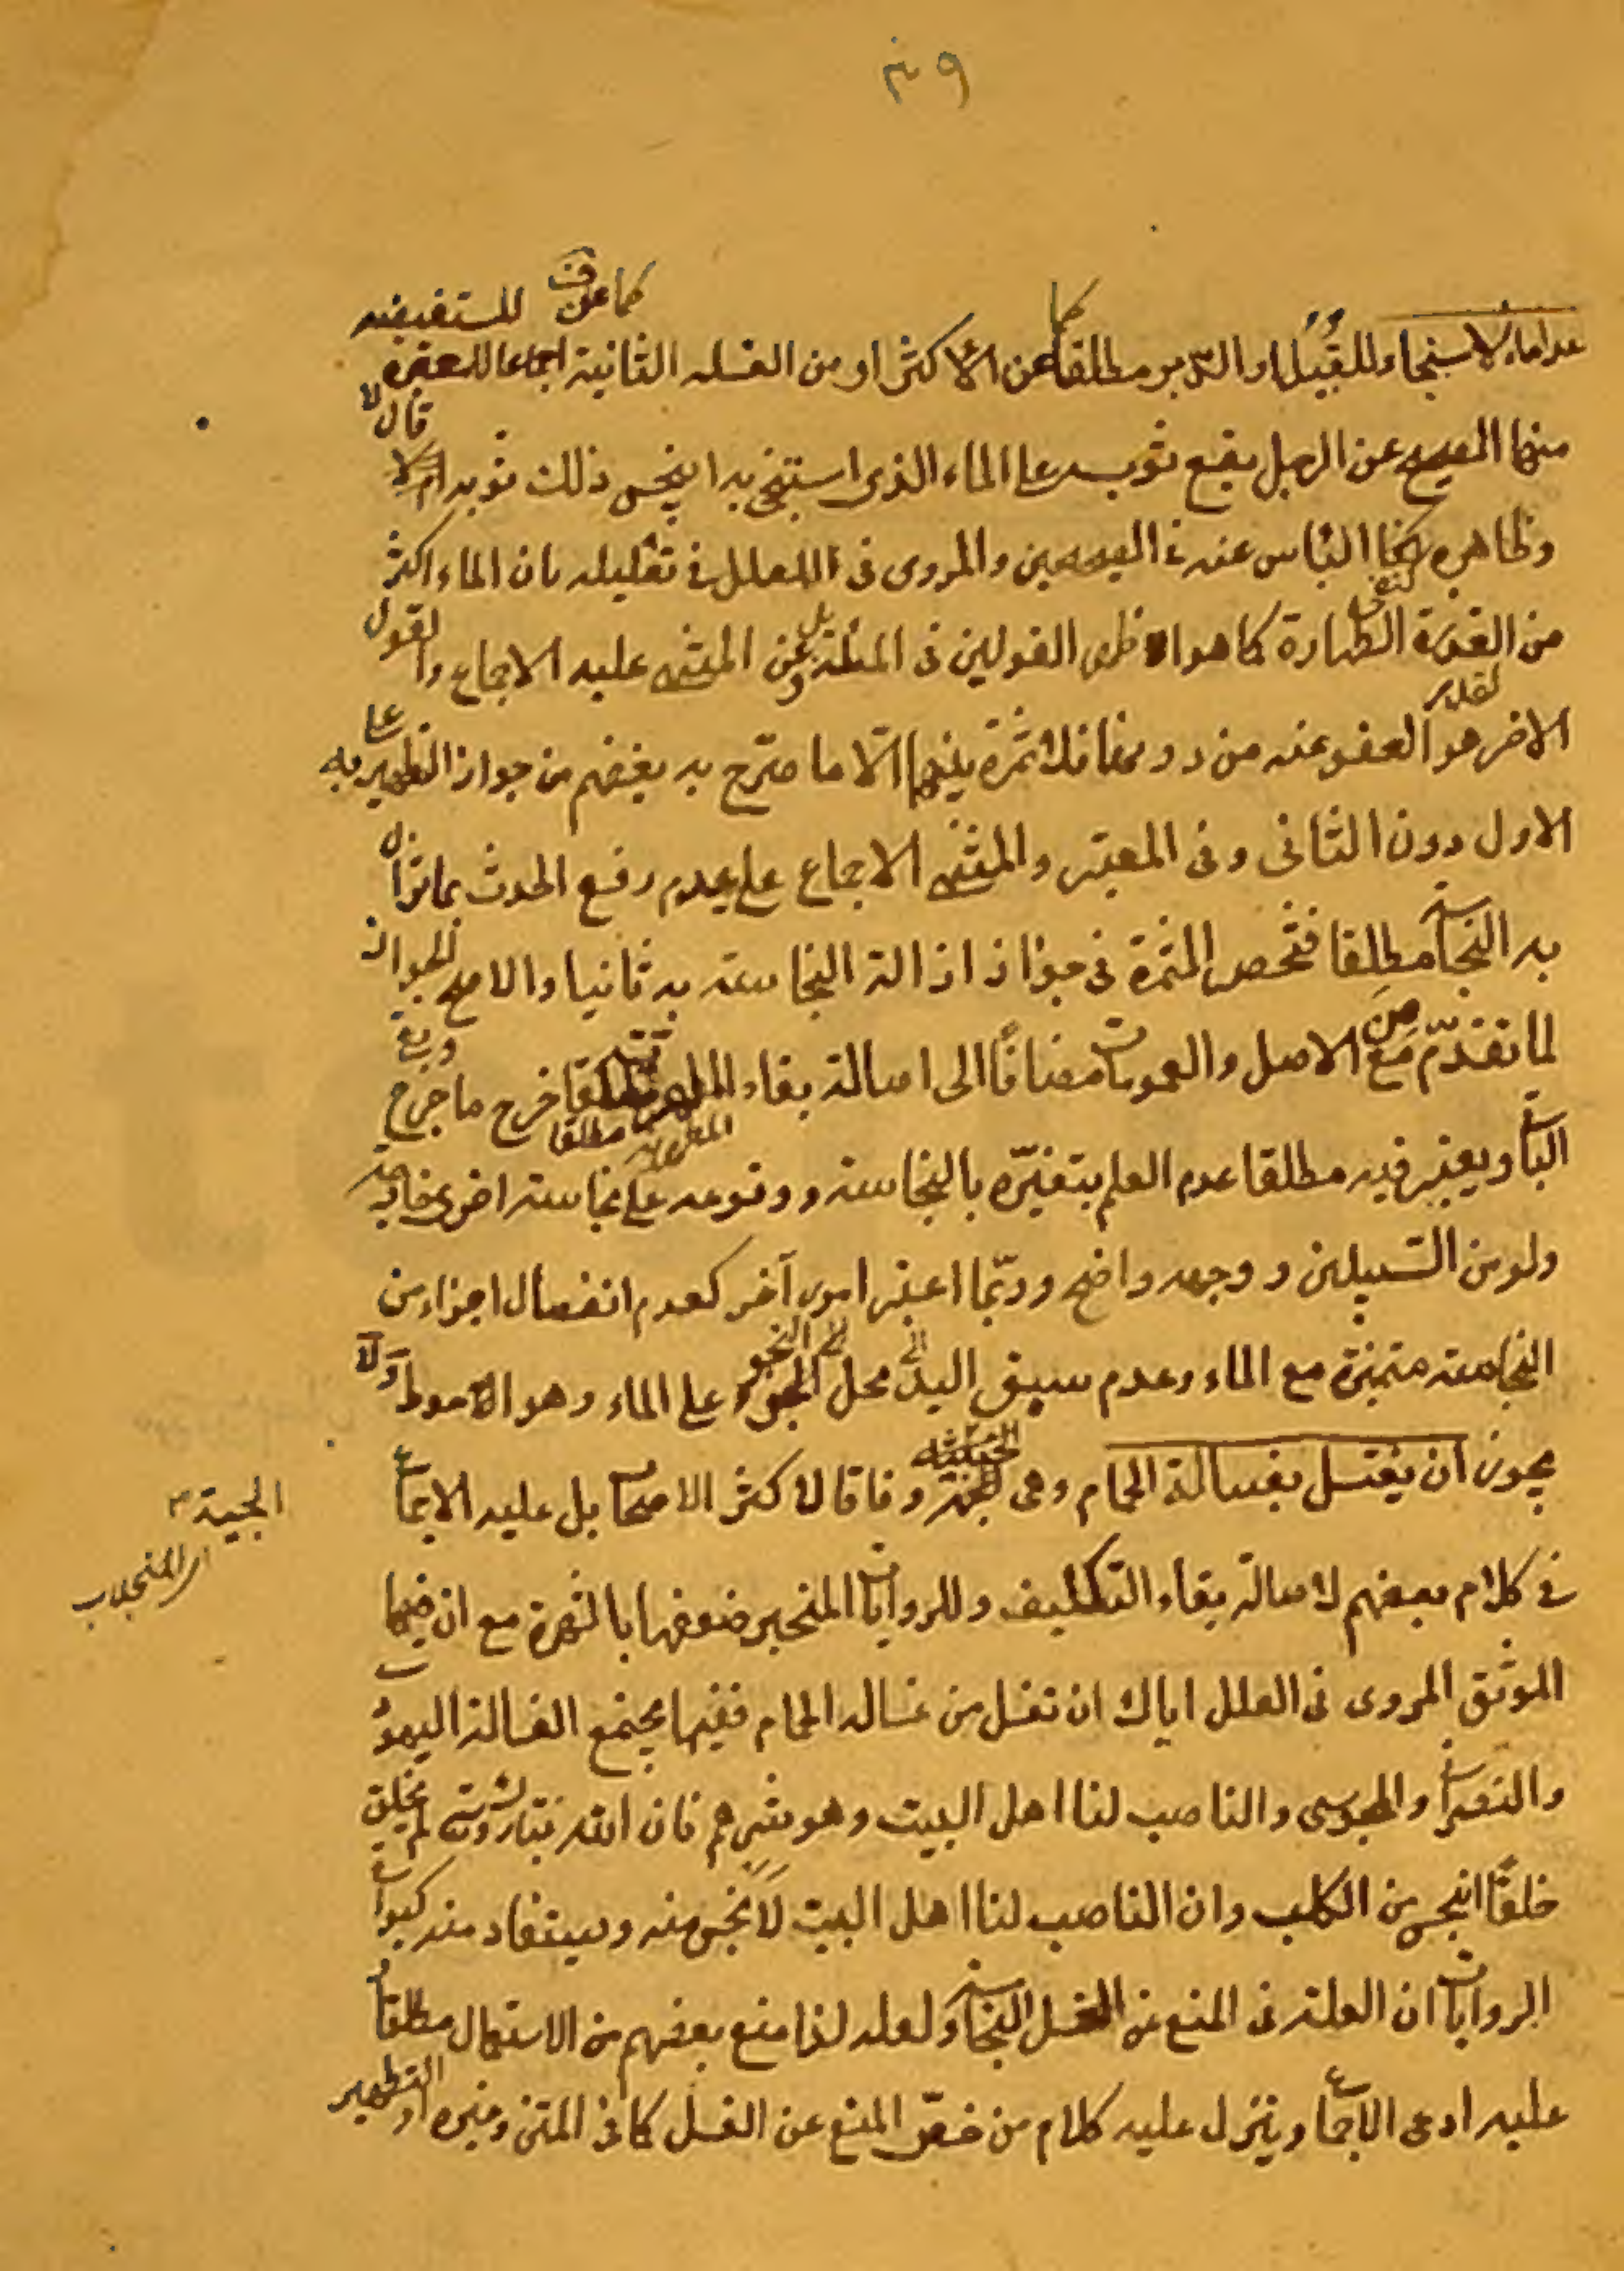 عدا ماء الاستنجاء للقبل او الدبر مطلقا كما عن الاكثر او من الغسلة الثانية اجماعا كما عن للمستفيضة المعتبرة
منها الصحيح عن الرجل يقع ثوبه على الماء الذى استنجى به اينجس ذلك ثوبه قال لا
وظاهره كنفى الباس عنه فى الصحيحين والمروى فى العلل فى تعليله بان الماء اكثر
من القذر الطهارة كما هو اظهر القولين فى المسئلة بل وعن المنتهى عليه الاجماع والقول
الاخر هو العفو عنه من دونها ثمرة بينهما الا ما صرح به بعضهم من جواز التطهير به على
الاول دون الثانى وفى المعتبر والمنتهى الاجماع على عدم رفع الحدث بما تزال
به النجاسة مطلقا فتخص الثمرة فى جواز ازالة النجاسة به ثانيا والاصح الجواز
لما تقدم من الاصل والعمومات مضافا الى اصالة بقاء المطهرية مطلقا خرج ما خرج وبقى
الباقى ويعتبر فيه مطلقا عدم العلم بتغيره بالنجاسة ووقوعه على نجاسة اخرى خارجة
ولو من السبيلين ووجهه واضح وربما اعتبر امور آخر كعدم انفصال اجزاء من
النجاسة متميزة مع الماء وعدم سبق اليد الى محل النجو على الماء وهو الاحوط ولا
يجوز ان يغتسل بغسالة الحمام وهى الجية وفاقا لاكثر الاصحاب بل عليه الاجماع
الجية
فى كلام بعضهم لاصالة بقاء التكليف وللروايات المنجبر ضعفها بالشهرة مع ان فيها
الموثق المروى فى العلل اياك ان تغتسل من غسالة الحمام ففيها يجتمع الغسالة اليهود
والنصرانى والمجوسى والناصب لنا اهل البيت وهو شرهم فان الله تبارك وتعالى لم يخلق
خلقا انجس من الكلب وان الناصب لنا اهل البيت لانجس منه ويستفاد منه كبواقى
الروايات ان العلة فى المنع من الغسل النجاسة ولعله لذا منع بعضهم من الاستعمال مطلقا
عليه ادعى الاجماع وينزل عليه كلام من خص المنع عن الغسل كما فى المتن وغيره او التطهير